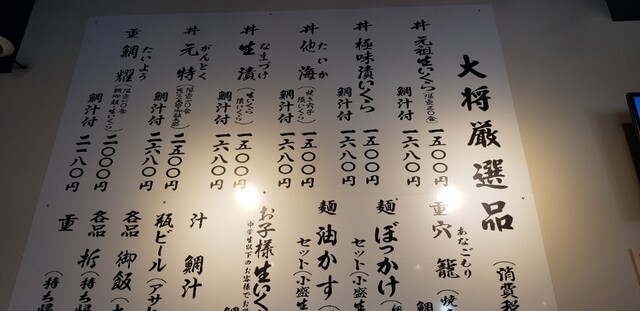 大将厳選品
(消費税
丼 元祖生いくら(限定二〇食)
一五〇〇円
鯛汁付 一六八〇円
丼 極味漬いくら
一五〇〇円
鯛汁付 一六八〇円
丼 他海
たいか
一五〇〇円
鯛汁付 一六八〇円
丼 生漬
なまづけ
一五〇〇円
鯛汁付 一六八〇円
丼 元特
がんとく
二五〇〇円
鯛汁付 二六八〇円
重 鯛耀
たいよう
二〇〇〇円
鯛汁付 二一八〇円
重 穴籠
あなごもり
(焼
鯛
麺 ぼっかけ
セット(小盛生
麺 油かす
セット(小盛生
お子様生いく
中学生以下のお客様でお
鯛
汁 鯛汁
瓶ビール(アサ
各品 御飯
各品 折(持ち帰
重 (持ち帰